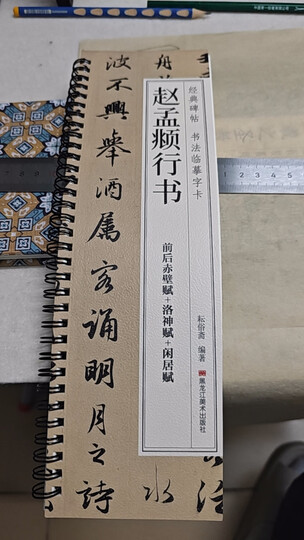 经典碑帖 书法临摹字卡
赵孟𫖯行书
前后赤壁赋+洛神赋+闲居赋
耘俗斋 编著
黑龙江美术出版社
波不興舉酒屬客誦明月之詩
水
1 2 3 4 5